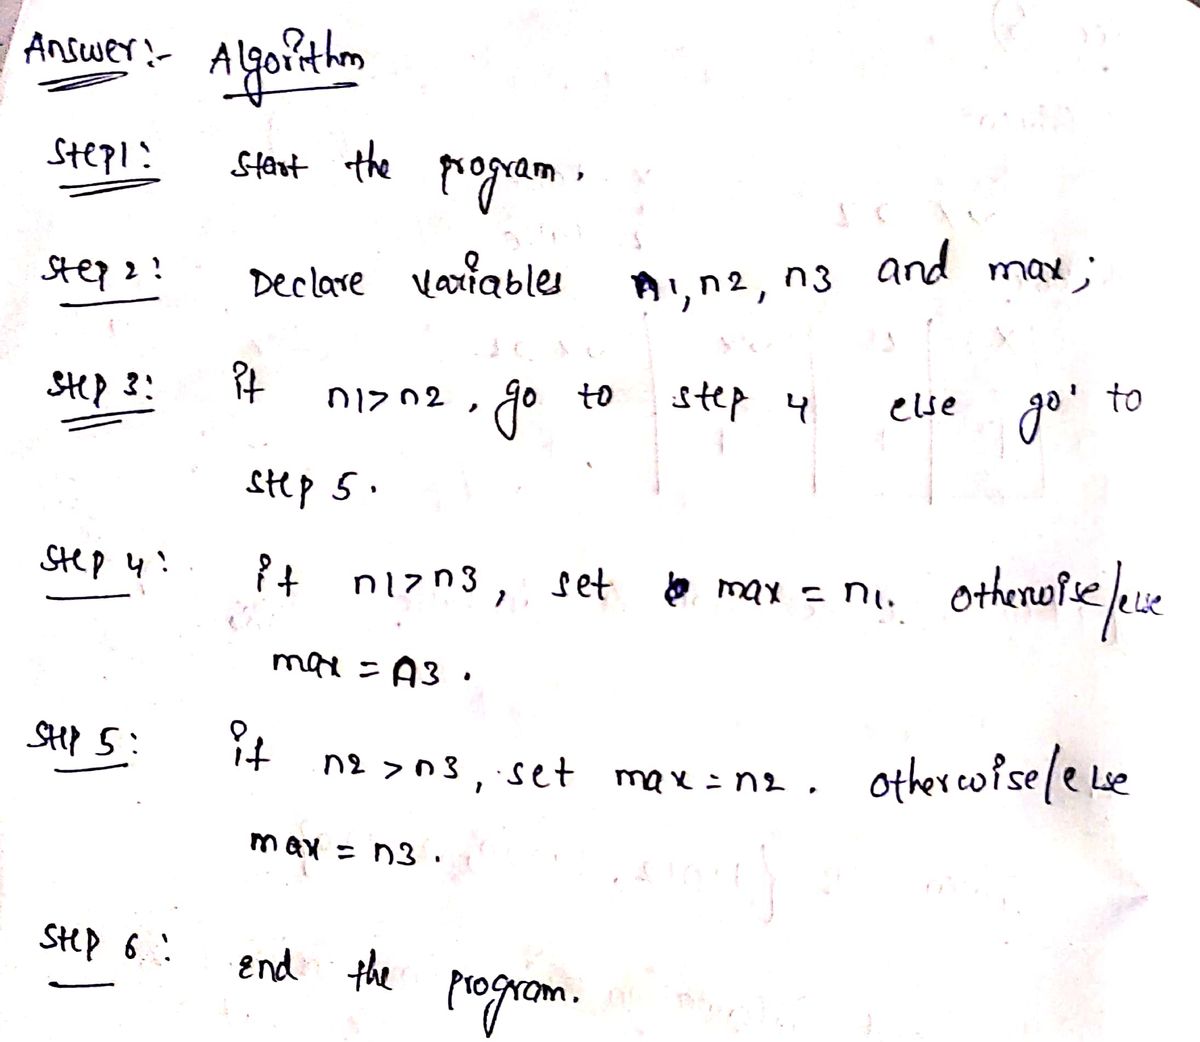 Answer:- Algorithm
Step1: Start the program.
Step 2: Declare variables n1, n2, n3 and max;
Step 3: if n1>n2, go to step 4 else go to
step 5.
Step 4: if n1>n3, set max = n1. otherwise/else
max = n3.
Step 5: if n2 >n3, set max = n2. otherwise/else
max = n3.
Step 6: end the program.